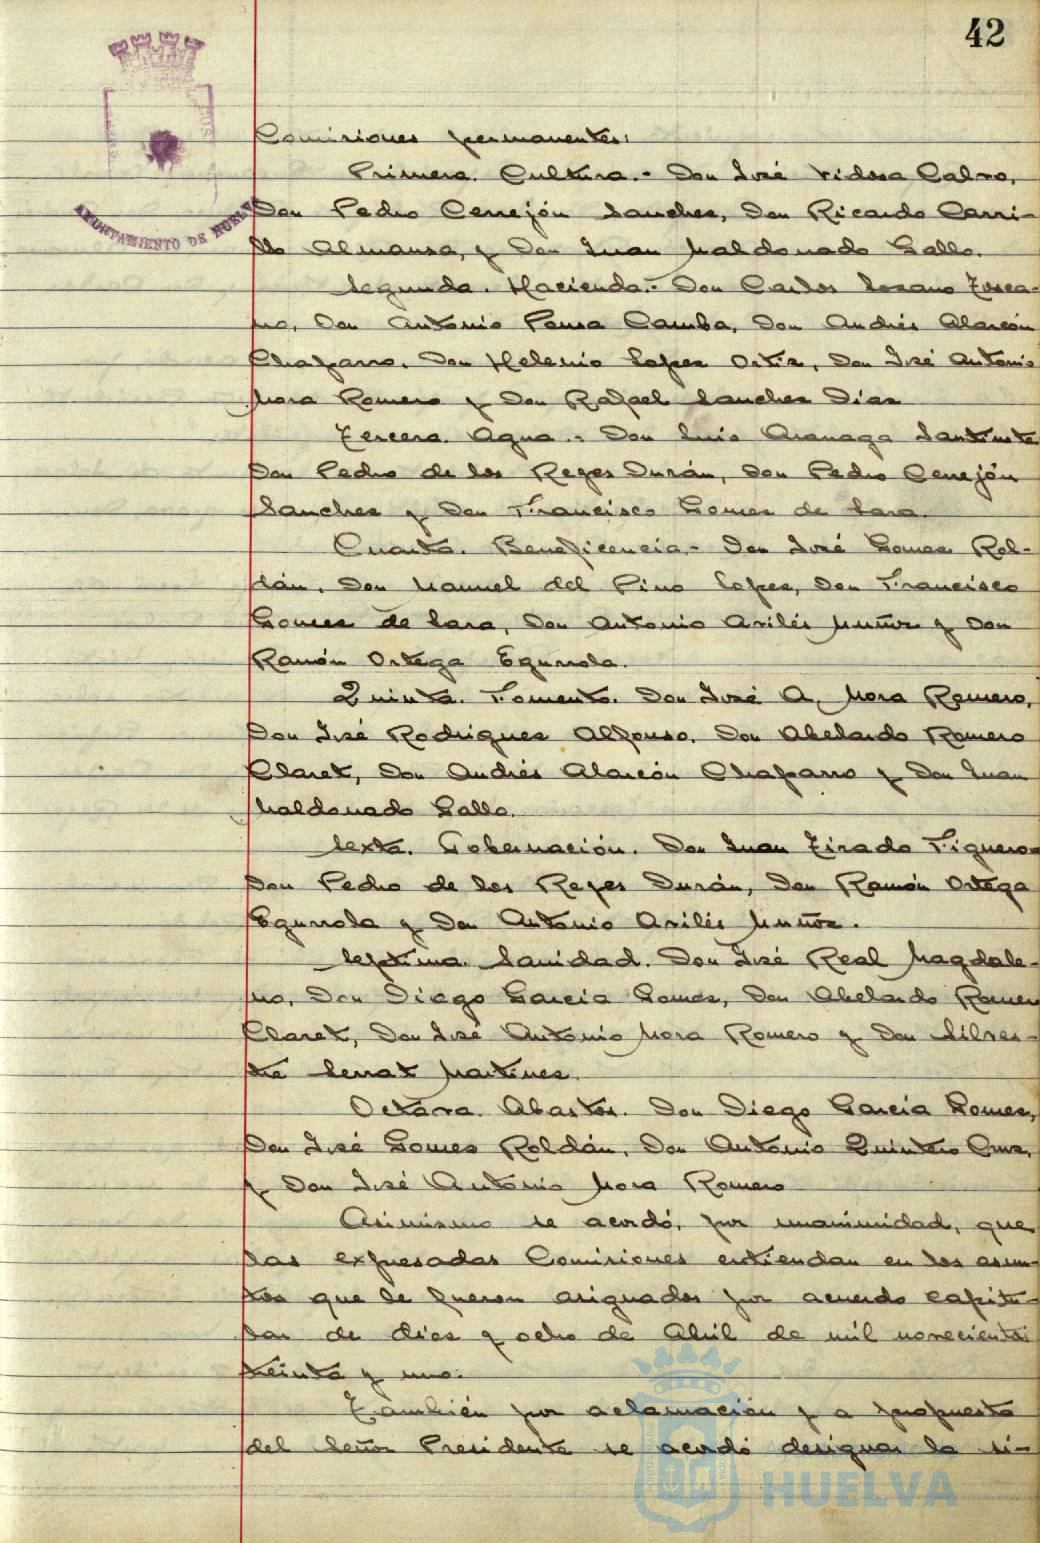 42
AYUNTAMIENTO DE HUELVA
Comisiones permanentes:
Primera. Cultura.- Don José Vidosa Calvo,
Don Pedro Cerrejón Sanchez, Don Ricardo Carri-
llo Almansa, y Don Juan Maldonado Gallo.
Segunda. Hacienda.- Don Carlos Lozano Tosca-
no, Don Antonio Pousa Camba, Don Andrés Alarcón
Chaparro, Don Helenio Lopez Ortiz, Don José Antonio
Mora Romero y Don Rafael Sanchez Diaz
Tercera. Agua.- Don Luis Aranaga
Don Pedro de los Reyes Durán, Don Pedro Cerrejón
Sanchez y Don Francisco Gomez de Lara.
Cuarta. Beneficencia.- Don José Gomez Rol-
dán, Don Manuel del Pino Lopez, Don Francisco
Gomez de Lara, Don Antonio Avilés Muñoz y Don
Ramón Ortega Egurrola.
Quinta. Fomento. Don José A. Mora Romero,
Don José Rodriguez Alfonso, Don Abelardo Romero
Claret, Don Andrés Alarcón Chaparro y Don Juan
Maldonado Gallo.
Sexta. Gobernación. Don Juan Tirado Figueroa
Don Pedro de los Reyes Durán, Don Ramón Ortega
Egurrola y Don Antonio Avilés Muñoz.
Septima. Sanidad. Don José Real Magdale-
no, Don Diego Garcia Gomez, Don Abelardo Romero
Claret, Don José Antonio Mora Romero y Don Silves-
tre Serrat Martinez.
Octava. Abastos. Don Diego García Gomez,
Don José Gomez Roldán, Don Antonio Quintero Cruz,
y Don José Antonio Mora Romero
Asimismo se acordó, por unanimidad, que
las expresadas Comisiones entiendan en los asun-
tos que le fueron asignados por acuerdo capitu-
lar de diez y ocho de Abril de mil novecientos
treinta y uno.
También por aclamación y a propuesta
del Señor Presidente se acordó designar la si-
HUELVA